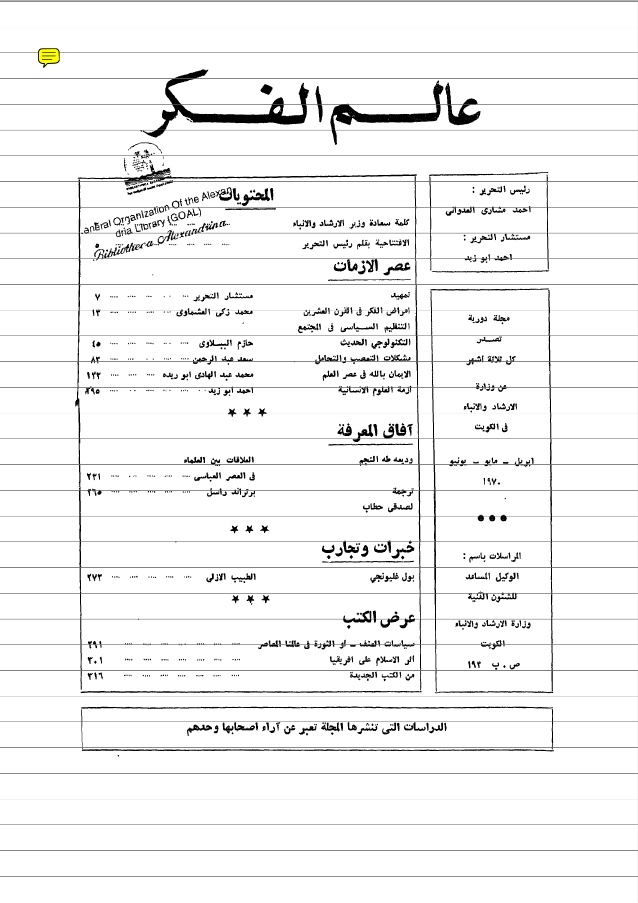 عالم الفكر
رئيس التحرير :
احمد مشارى العدوانى
مستشار التحرير :
احمد ابو زيد
مجلة دورية
تصدر
كل ثلاثة اشهر
عن وزارة
الارشاد والانباء
فى الكويت
ابريل – مايو – يونيو
١٩٧٠
المراسلات باسم :
الوكيل المساعد
للشئون الفنية
وزارة الارشاد والانباء
الكويت
ص . ب ١٩٣
المحتويات
General Organization Of the Alexan
dria Library (GOAL)
Bibliotheca Alexandrina
كلمة سعادة وزير الارشاد والانباء
الافتتاحية بقلم رئيس التحرير
عصر الازمات
تمهيد مستشار التحرير ٧
امراض الفكر فى القرن العشرين محمد زكى العشماوى ١٣
التنظيم السياسى فى المجتمع
التكنولوجي الحديث حازم الببلاوى ٤٥
مشكلات التعصب والتحامل سعد عبد الرحمن ٨٣
الايمان بالله فى عصر العلم محمد عبد الهادى ابو ريده
ازمة العلوم الانسانية احمد ابو زيد
★ ★ ★
آفاق المعرفة
وديعه طه النجم العلاقات بين العلماء
فى العصر العباسى ٢٣١
ترجمة برتراند راسل ٢٦٥
لصدقى حطاب
★ ★ ★
خبرات وتجارب
بول غليونجي الطبيب الازلى ٢٧٣
★ ★ ★
عرض الكتب
سياسات العنف – او الثورة فى عالمنا المعاصر ٢٩١
اثر الاسلام على افريقيا ٣٠١
من الكتب الجديدة ٣١٦
الدراسات التى تنشرها المجلة تعبر عن آراء اصحابها وحدهم